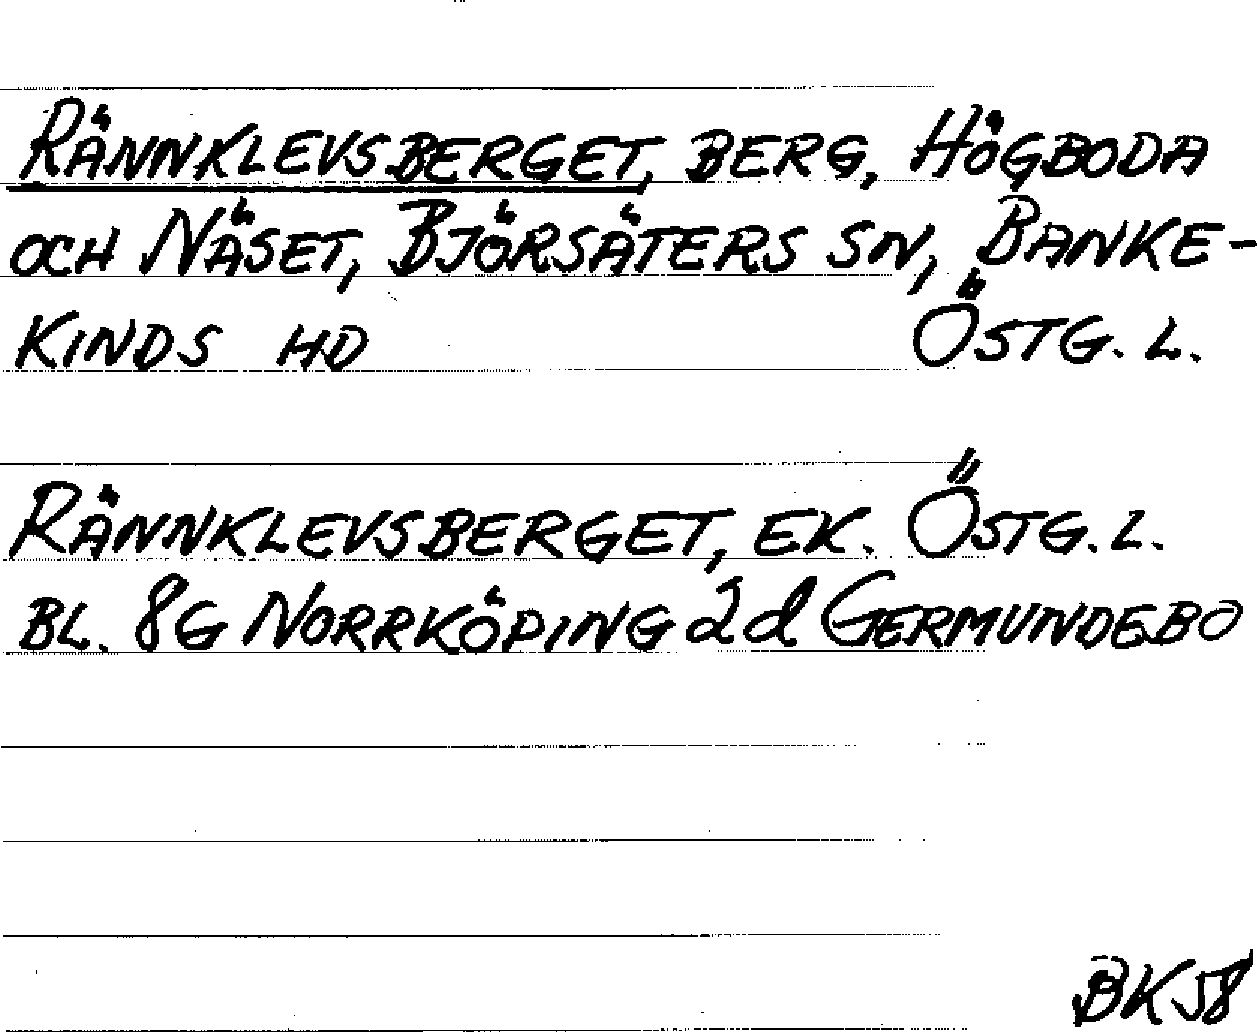 RÄNNKLEVSBERGET, BERG, HÖGBODA
OCH NÄSET, BJÖRSÄTERS SN, BANKE-
KINDS HD ÖSTG. L.
RÄNNKLEVSBERGET, EK. ÖSTG. L.
BL. 8G NORRKÖPING 2d GERMUNDEBO
BK58